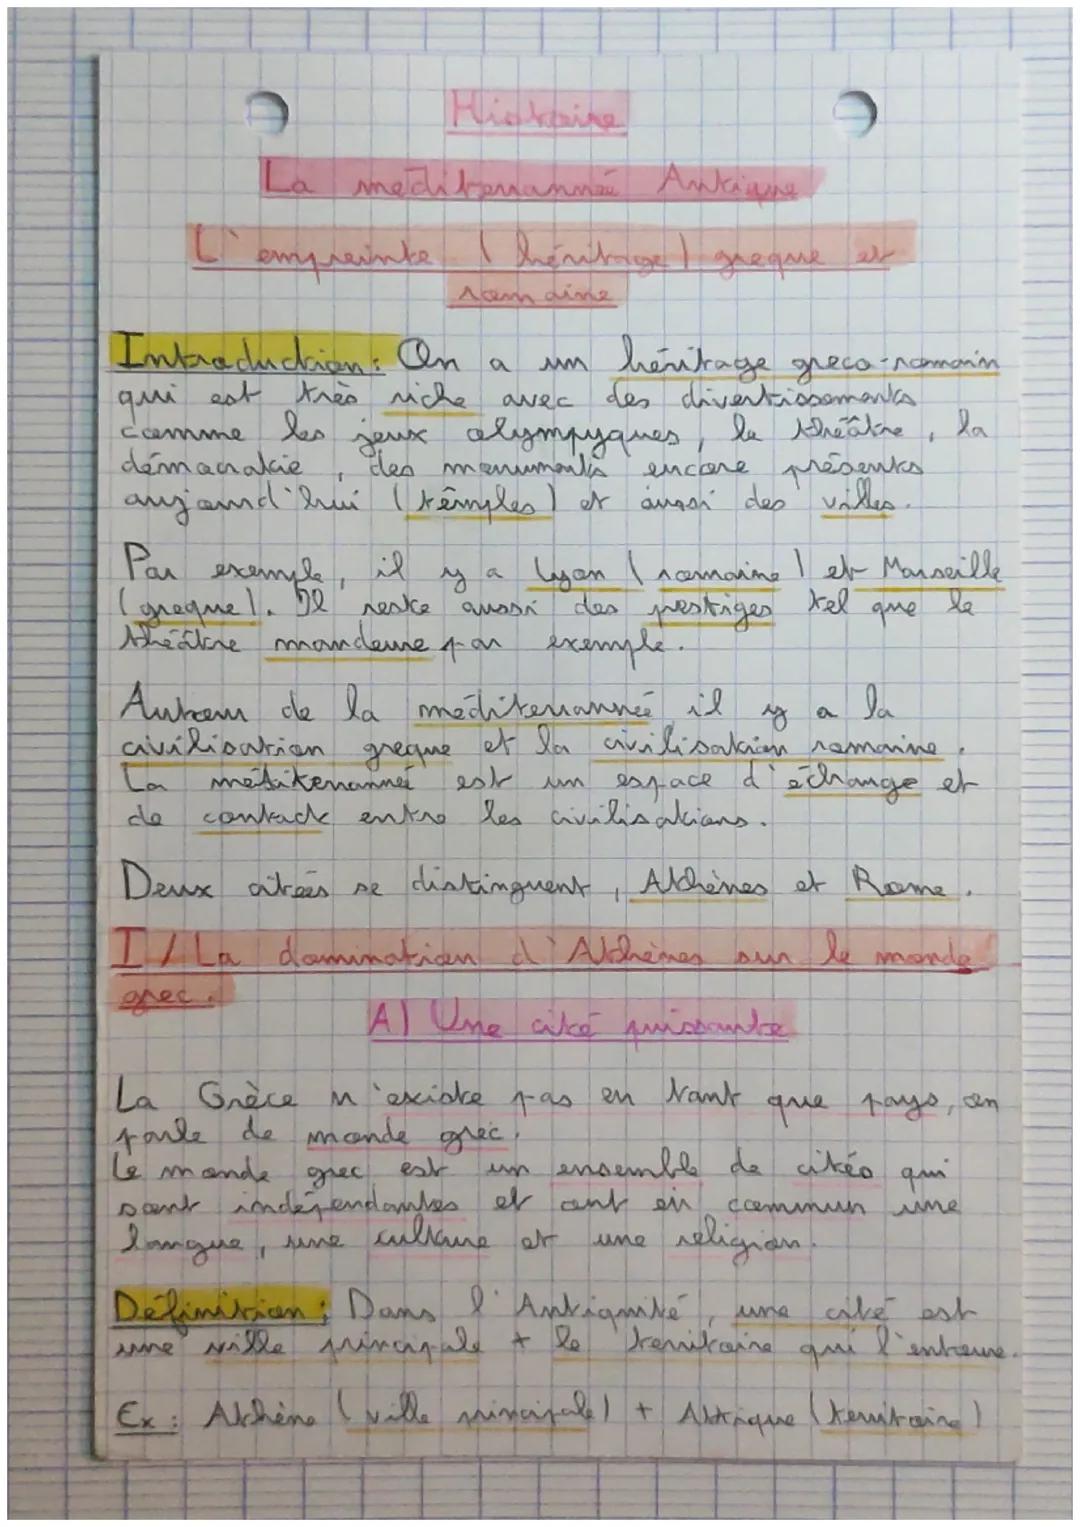 Histoire
La méditerrannée Antique
L'empreinte (héritage) greque et
romaine
Introduction: On a un héritage greco-romain
qui est très riche avec des divertissements
comme les jeux olympyques, le théâtre, la
démocratie, des monuments encore présents
aujourd'hui (têmples) et aussi des villes.
Par exemple, il y a Lyon (romaine) et Marseille
(greque). Il reste aussi des prestiges tel que le
théâtre mondeune par exemple.
Autour de la méditerrannée il y a la
civilisation greque et la civilisation romaine.
La méditerrannée est un espace d'échange et
de contact entre les civilisations.
Deux citées se distinguent, Athènes et Rome.
I/ La domination d'Athènes sur le monde
grec.
A) Une cité puissante
La Grèce n'existe pas en tant que pays, on
parle de monde grec.
Le monde grec est un ensemble de cités qui
sont indépendantes et ont en commun une
langue, une culture et une religion.
Définition: Dans l'Antiquité, une cité est
une ville principale + le territoire qui l'entoure.
Ex: Athène (ville principale) + Attique (territoire)